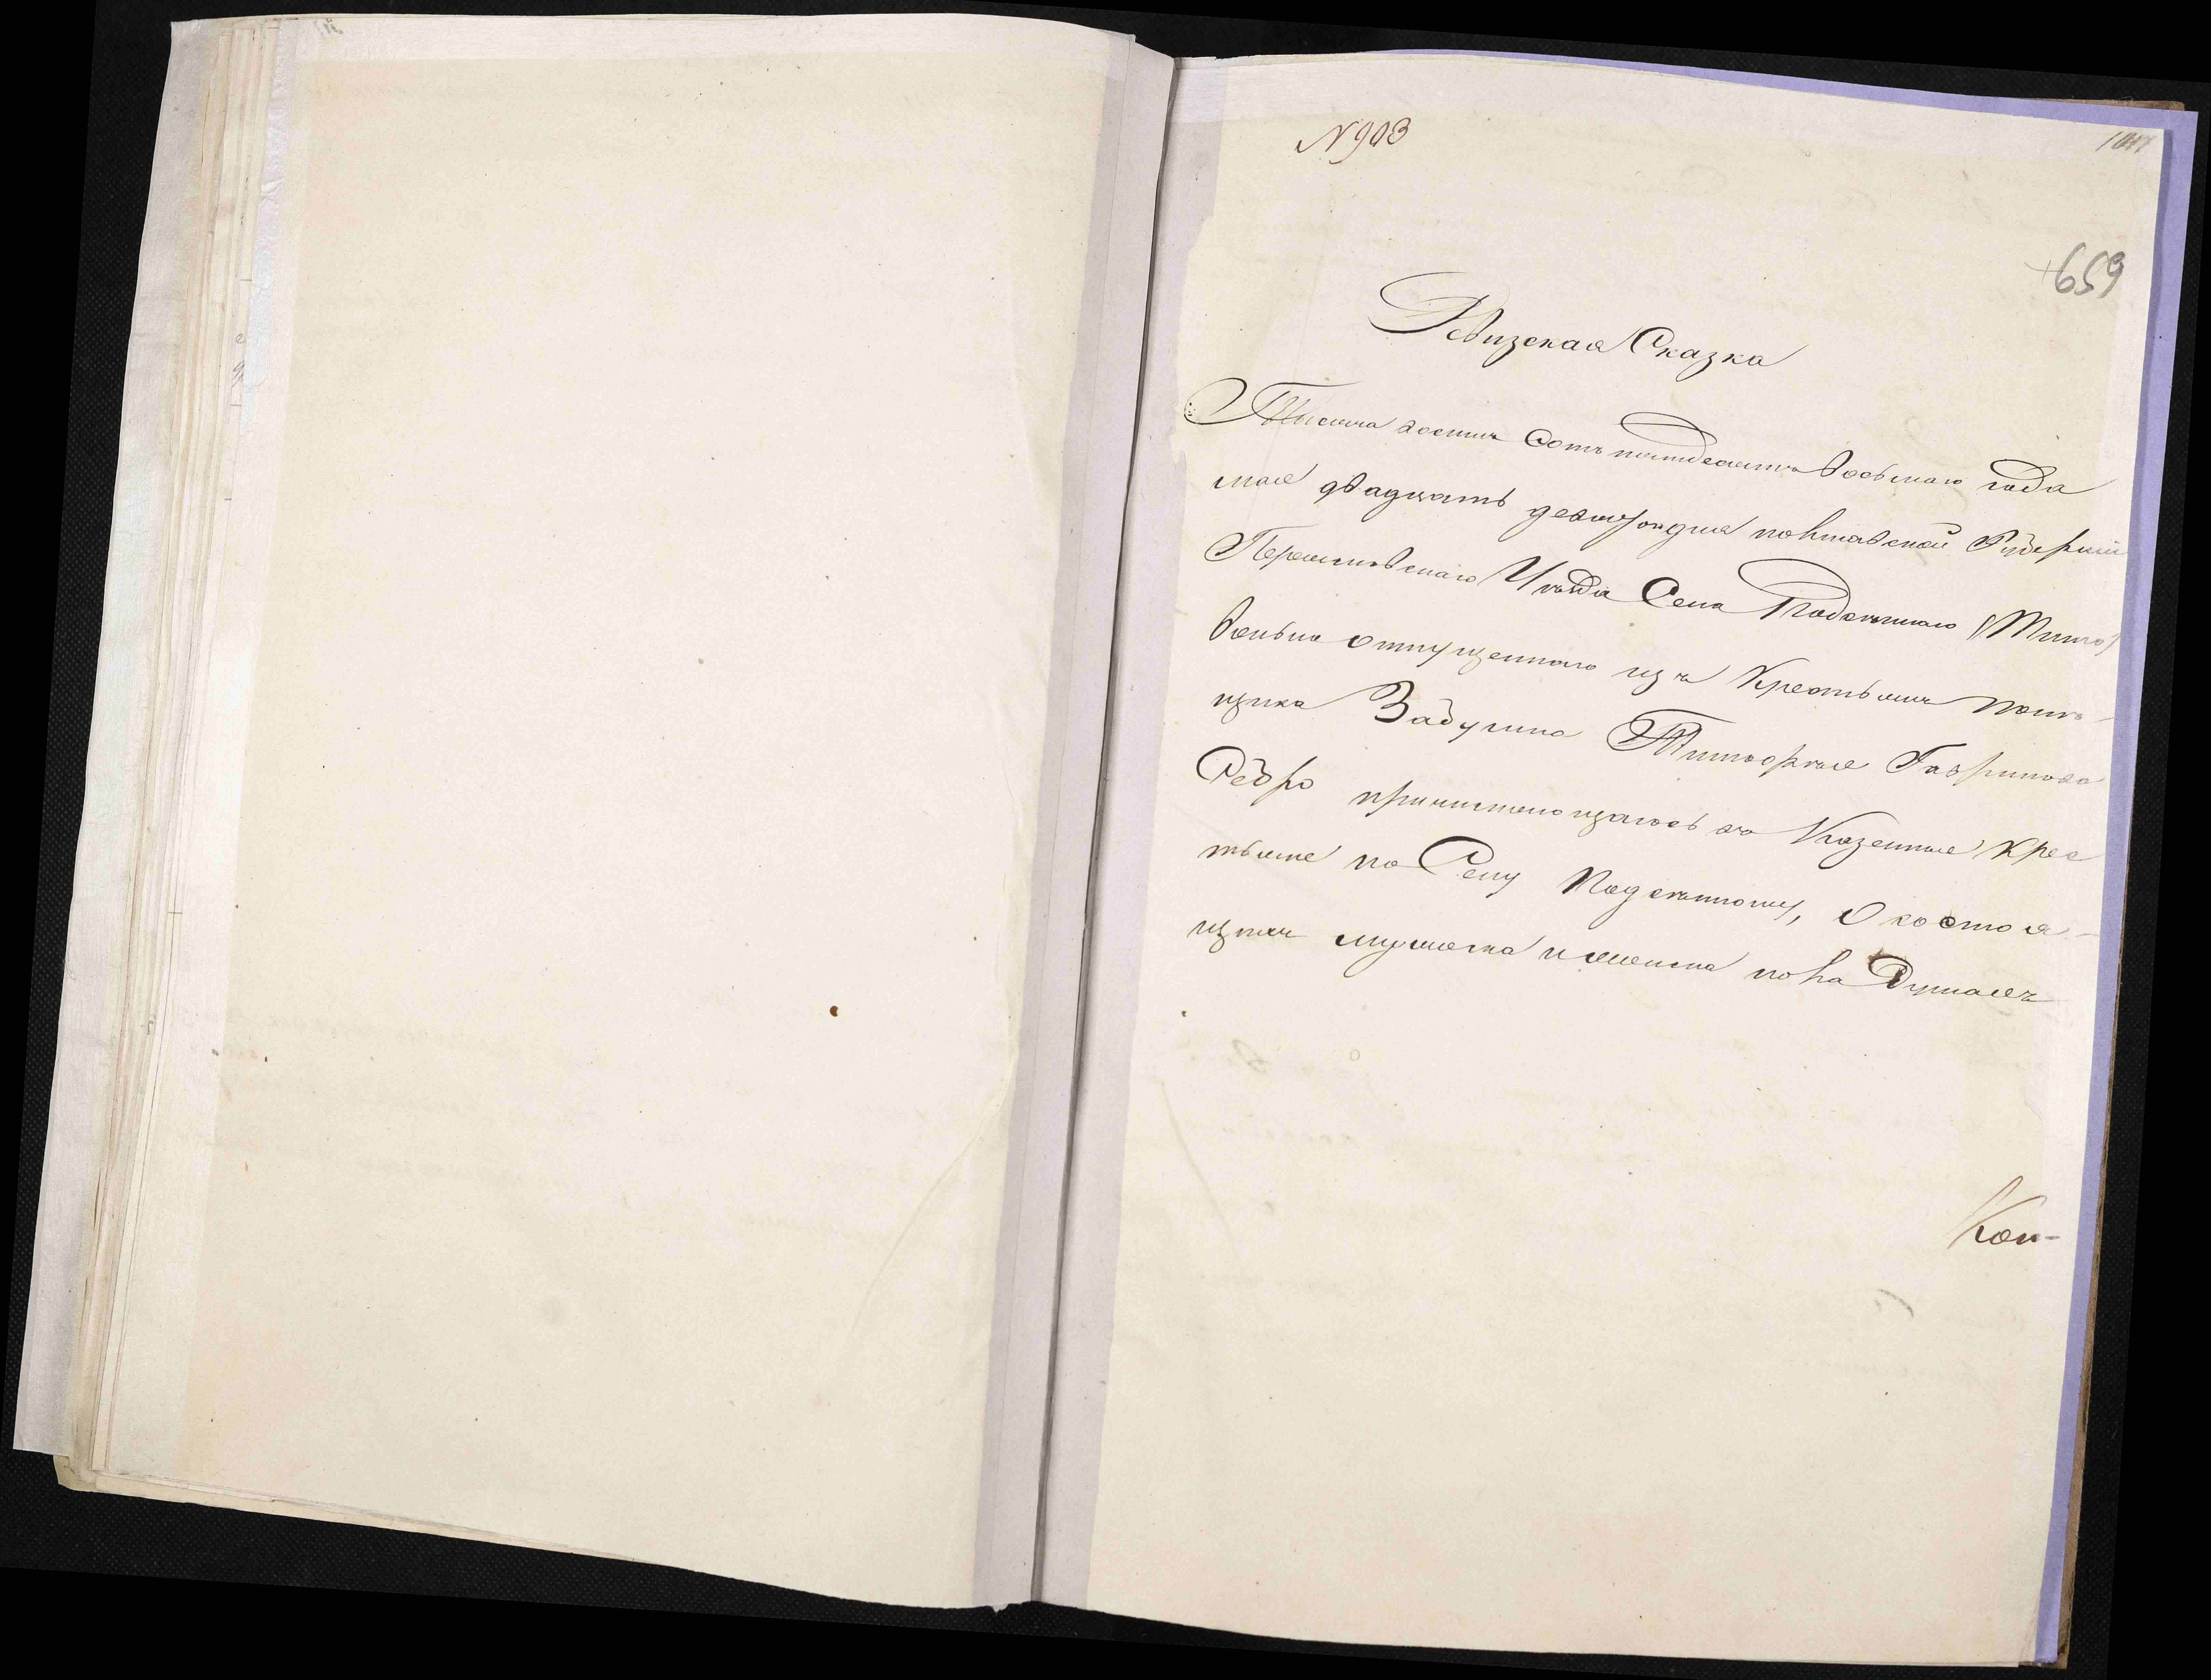 N 903
659
Ревизская Сказка
Тысяча восемь Сотъ пятдесятъ восьмаго года
мая двадцать девятого дня полтавской Губерніи
Переяславскаго Уѣзда Села Подсѣннаго
вольно отпущеннаго изъ Крестьянъ помѣ-
щика Забугина Тимофея Гаврилова
причисляющагось въ Казенные крес
тьяне по Селу Подсѣнному, О состоя-
щихъ мужеска и женска пола Душахъ
Коп-